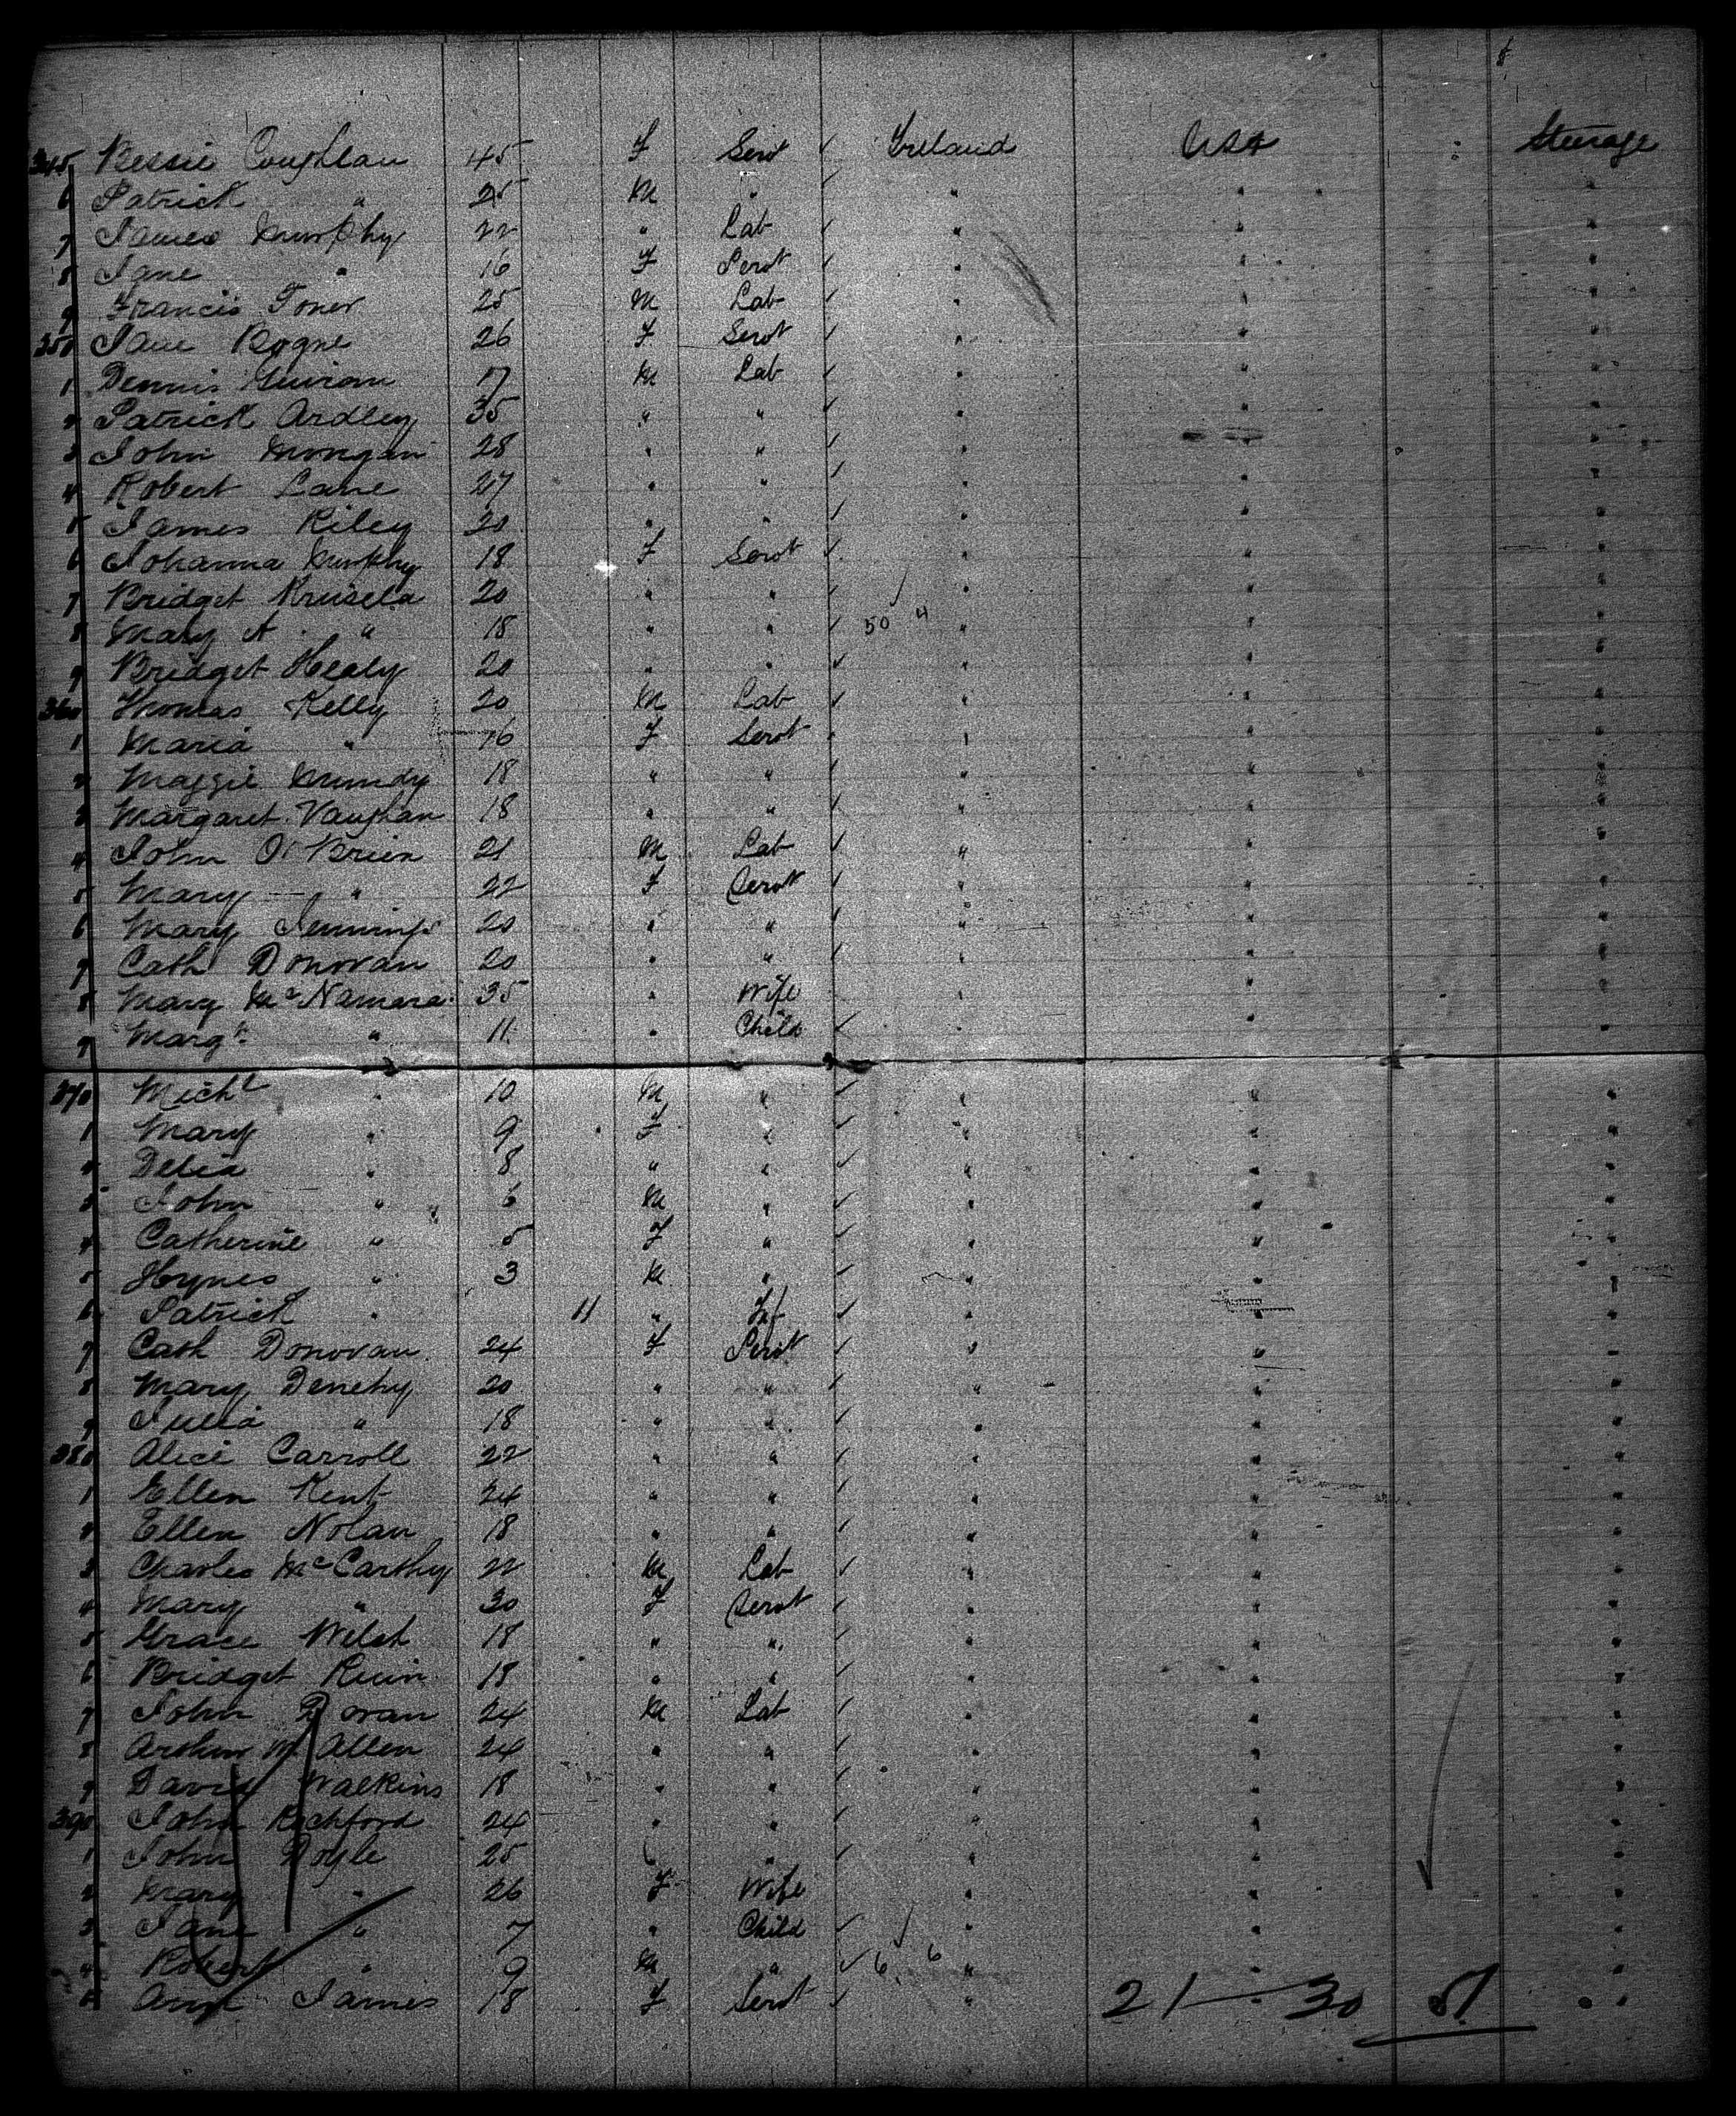 345 Bessie Coughlan 45 F Servt ✓ Ireland USA Steerage
6 Patrick " 25 M " ✓ " " "
7 James Murphy 22 " Lab ✓ " " "
8 Jane " 16 F Servt ✓ " " "
9 Francis Toner 25 M Lab ✓ " " "
350 Jane Bogne 26 F Servt ✓ " " "
1 Dennis 17 M Lab ✓ " " "
2 Patrick Ardley 35 " " ✓ " " "
3 John Mongan 28 " " ✓ " " "
4 Robert Lane 27 " " ✓ " " "
5 James Riley 20 " " ✓ " " "
6 Johanna Murphy 18 F Servt ✓ " " "
7 Bridget 20 " " ✓ " " "
8 Mary A " 18 " " ✓ 50 4 " " "
9 Bridget Healy 20 " " ✓ " " "
360 Thomas Kelly 20 M Lab ✓ " " "
1 Maria " 16 F Servt " " "
2 Maggie Mundy 18 " " ✓ " " "
3 Margaret Vaughan 18 " " ✓ " " "
4 John O'Brien 21 M Lab ✓ " " "
5 Mary " 22 F Servt ✓ " " "
6 Mary Jennings 20 " " ✓ " " "
7 Cath Donovan 20 " " ✓ " " "
8 Mary McNamara 35 " Wife " " "
9 Margt " 11 " Child ✓ " "
370 Michl " 10 M " ✓ " " "
1 Mary " 9 F " ✓ " " "
2 Delia " 8 " " ✓ " " "
3 John " 6 M " ✓ " " "
4 Catherine " 5 F " ✓ " " "
5 Hynes " 3 M " ✓ " " "
6 Patrick " 11 " Inf ✓ " " "
7 Cath Donovan 24 F Servt ✓ " " "
8 Mary Denehy 20 " " ✓ " " "
9 Julia " 18 " " ✓ " " "
380 Alice Carroll 22 " " ✓ " " "
1 Ellen Kent 24 " " ✓ " " "
2 Ellen Nolan 18 " " ✓ " " "
3 Charles McCarthy 22 M Lab ✓ " " "
4 Mary " 30 F Servt ✓ " " "
5 Grace Welsh 18 " " ✓ " " "
6 Bridget 18 " " ✓ " " "
7 John 24 M Lab ✓ " " "
8 Arthur M Allen 24 " " ✓ " " "
9 David Walkins 18 " " ✓ " " "
390 John Rochford 24 " " ✓ " " "
1 John Doyle 25 " " ✓ " " "
2 Mary " 26 F Wife " " "
3 Jane " 7 " Child ✓ " " "
4 Robert " 9 M " ✓ 6 6 " " "
5 Ann James 18 F Servt ✓ " 21 — 30 51 "